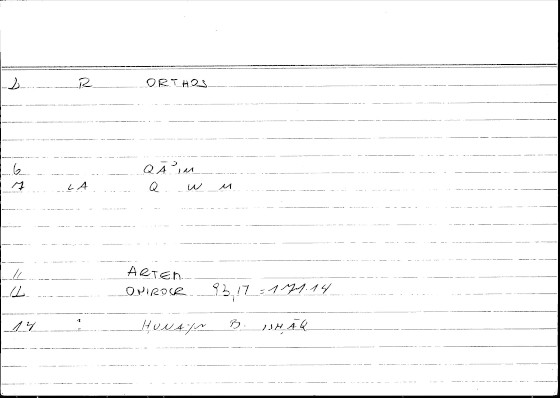 1 R ORTHOS
6 QĀʾIM
7 LA Q W M
11 ARTEM
12 ONIROCR 93,17 = 171.14
14 : ḤUNAYN B. ISḤĀQ